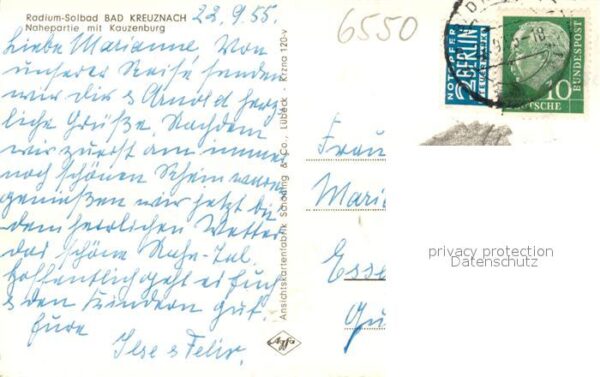 Radium-Solbad BAD KREUZNACH
Nahepartie mit Kauzenburg
22.9.55.
Liebe Marianne Von
unserer Reise senden
wir dir & Arnold herz
liche Grüße. Nachdem
wir zuerst am
noch schönen Rhein waren
genießen wir jetzt bei
dem herrlichen Wetter
das schöne Nahe-Tal.
Hoffentlich geht es Euch
& den Kindern gut.
Eure
Ilse & Felix.
Ansichtskartenfabrik Schöning & Co., Lübeck - Krzna 120-v
Agfa
6550
NOTOPFER
2 BERLIN
STEUERMARKE
DEUTSCHE BUNDESPOST
10
Frau
Maria
Esse
privacy protection
Datenschutz